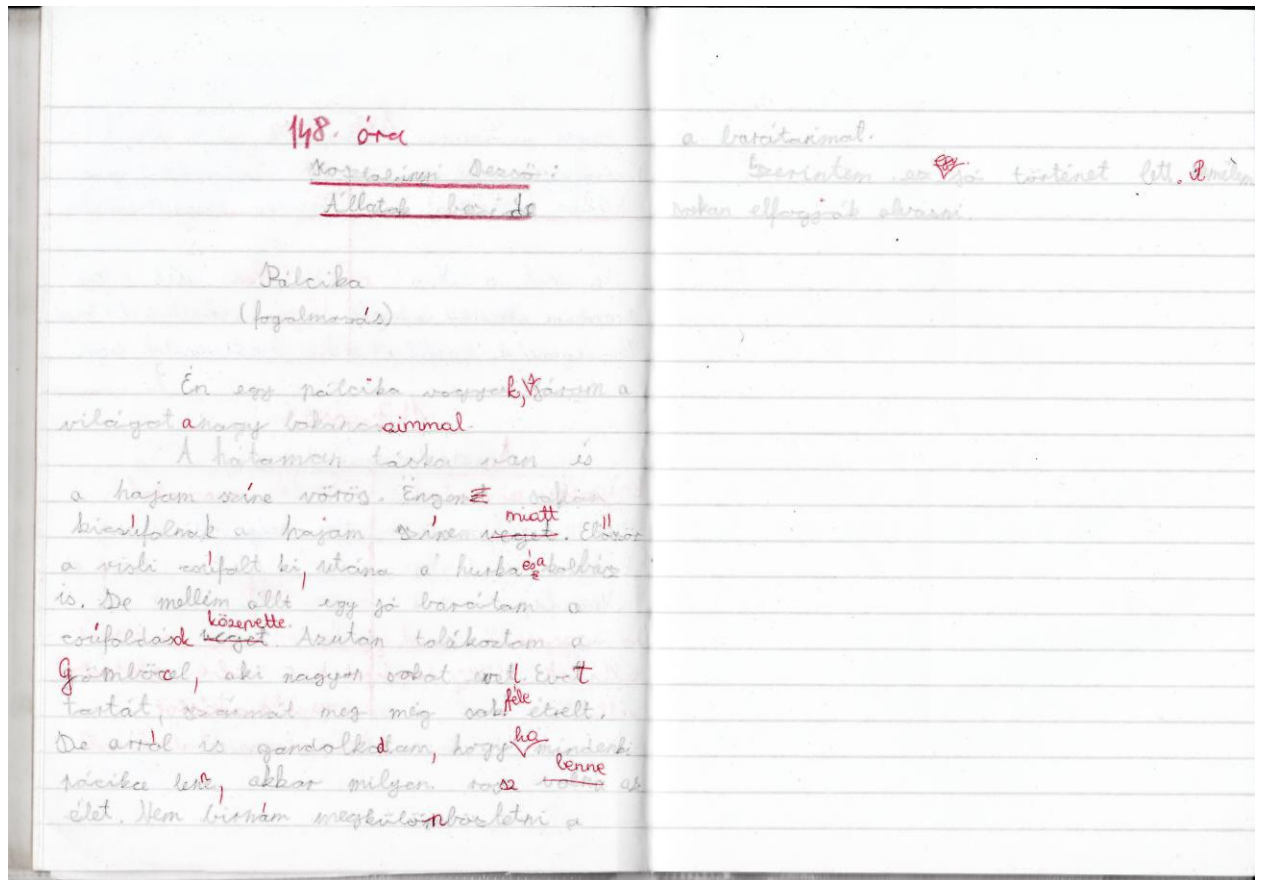 148. óra
Kosztolányi Dezső:
Állatok beszéde
Pálcika
(fogalmazás)
Én egy pálcika vagyok, járom a
világot a nagy bakancsaimmal.
A hátamon táska van és
a hajam színe vörös. Engem sokan
kicsúfolnak a hajam színe miatt veget. Először
a virsli csúfolt ki, utána a hurka és a kolbász
is. De mellém állt egy jó barátom a
csúfoldások közepette veget. Azután találkoztam a
Gömböcel, aki nagyon sokat evett
tortát, szármát meg még sok féle ételt.
De arról is gondolkodtam, hogy ha mindenki
pácika lenne, akkor milyen rossz benne volna az
élet. Nem bírnám megkülönböztetni a
a barátaimat.
Szerintem ez jó történet lett. Remélem
sokan elfogják olvasni.